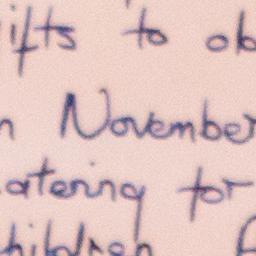 ifts to ob
n November
atering for
hildren f